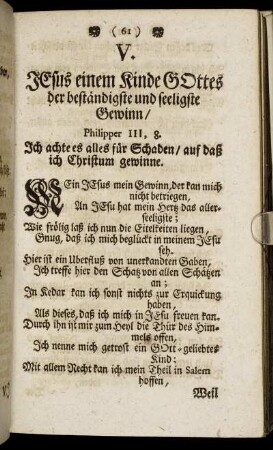 ( 61 )
V.
JEsus einem Kinde GOttes
der beständigste und seeligste
Gewinn/
Philipper III, 8.
Ich achte es alles für Schaden/ auf daß
ich Christum gewinne.
MEin JEsus mein Gewinn, der kan mich
nicht betriegen,
An JEsu hat mein Hertz das aller-
seeligste;
Wie frölig laß ich nun die Eitelkeiten liegen,
Gnug, daß ich mich beglückt in meinem JEsu
seh.
Hier ist ein Uberfluß von unerkandten Gaben,
Ich treffe hier den Schatz von allen Schätzen
an;
In Kedar kan ich sonst nichts zur Erquickung
haben,
Als dieses, daß ich mich in JEsu freuen kan.
Durch ihn ist mir zum Heyl die Thür des Him-
mels offen,
Ich nenne mich getrost ein GOtt-geliebtes
Kind:
Mit allem Recht kan ich mein Theil in Salem
hoffen,
Weil